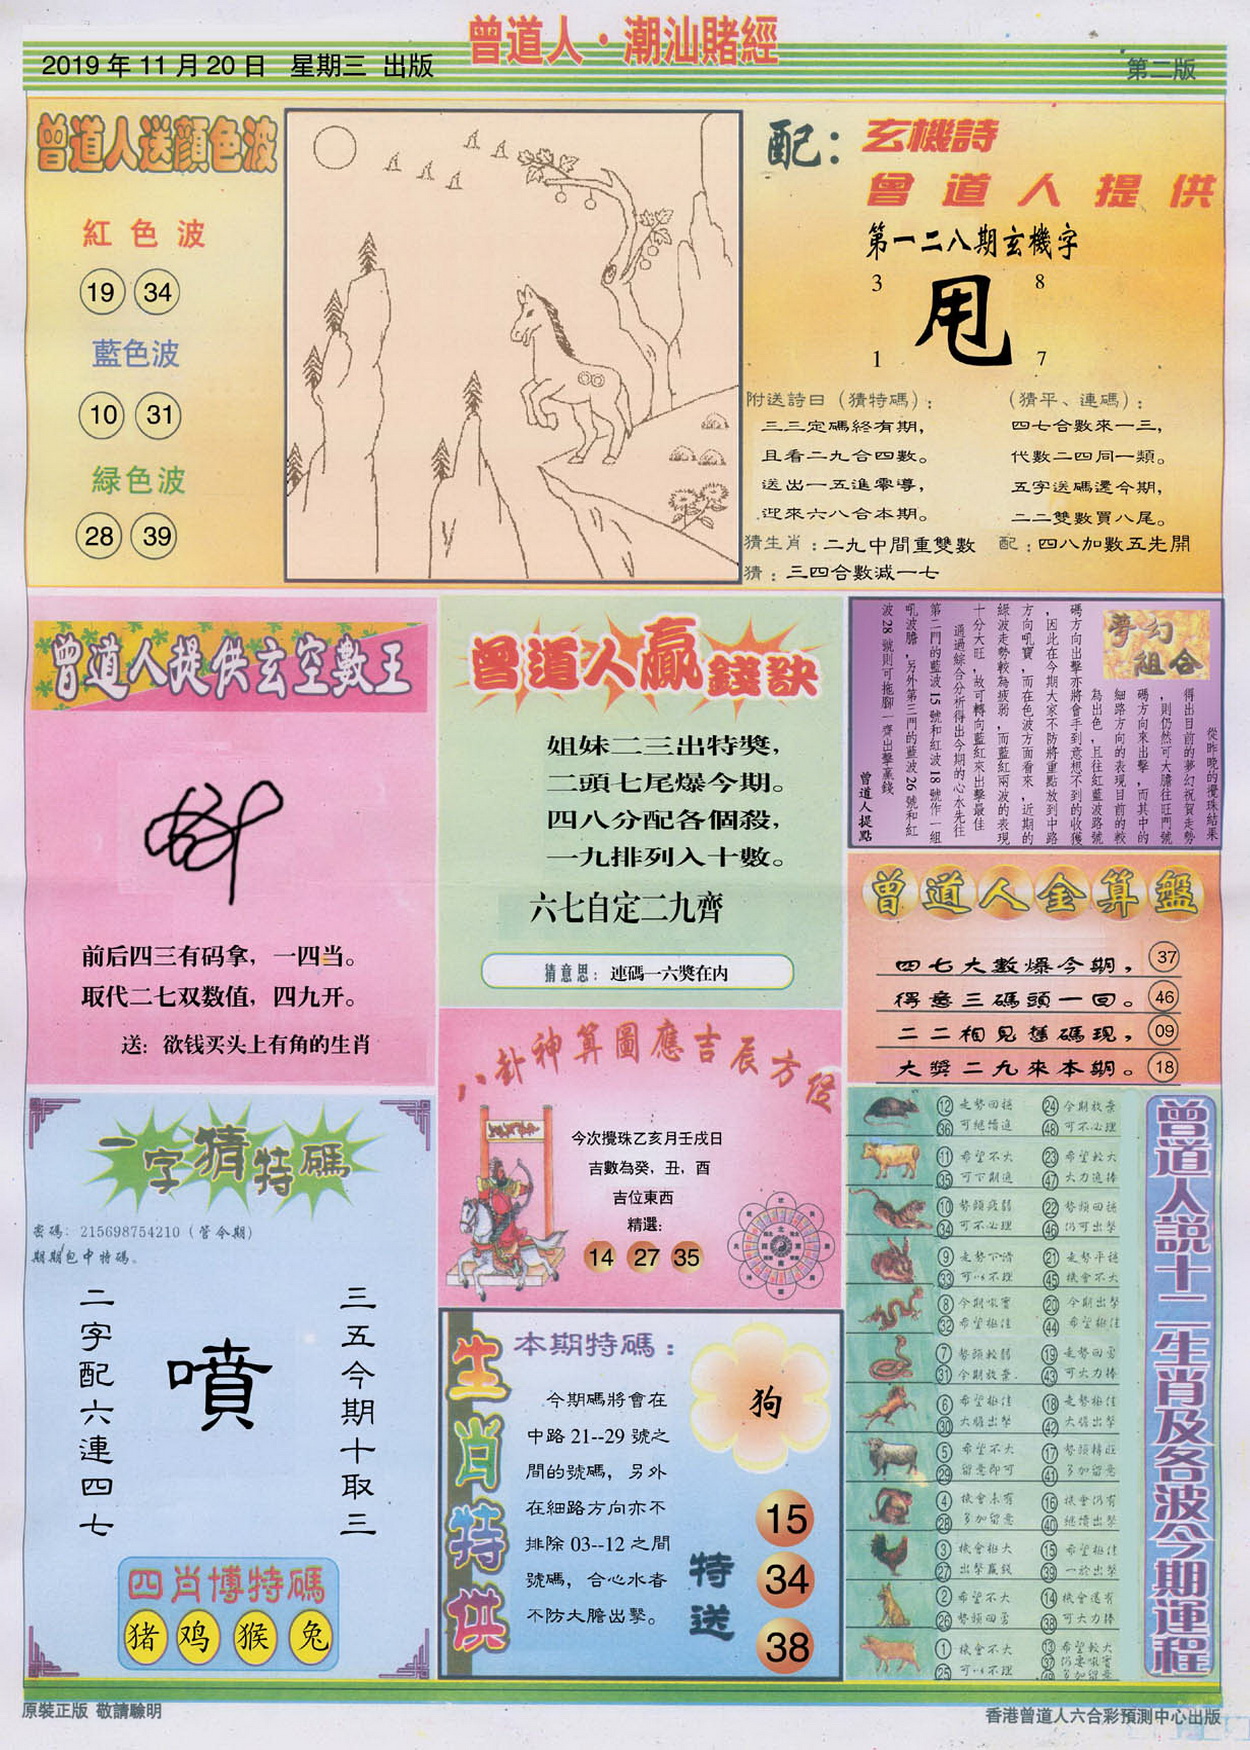 曾道人·潮汕賭經
2019年11月20日 星期三 出版
第二版
曾道人送顏色波
紅色波
19 34
藍色波
10 31
緑色波
28 39
配：玄機詩
曾道人提供
第一二八期玄機字
3 8
甩
1 7
附送詩曰（猜特碼）：
三三定碼終有期，
且看二九合四數。
送出一五進零導，
迎來六八合本期。
（猜平、連碼）：
四七合數來一三，
代數二四同一類。
五字送碼還今期，
二二雙數買八尾。
猜生肖：二九中間重雙數
配：四八加數五先開
猜：三四合數減一七
曾道人提供玄空數王
前后四三有码拿，一四当。
取代二七双数值，四九开。
送：欲钱买头上有角的生肖
曾道人贏錢訣
姐妹二三出特獎，
二頭七尾爆今期。
四八分配各個殺，
一九排列入十數。
六七自定二九齊
猜意思：連碼一六獎在内
夢幻組合
從昨晚的攪珠結果
得出目前的夢幻祝賀走勢
，則仍然可大膽往旺門號
碼方向來出擊，而其中的
細路方向的表現目前的較
為出色，且往紅藍波路號
碼方向出擊亦將會手到意想不到的收獲
，因此在今期大家不防將重點放到中路
方向吼寶，而在色波方面看來，近期的
綠波走勢較為疲弱，而藍紅兩波的表現
十分大旺，故可轉向藍紅來出擊最佳
通過綜合分析得出今期的心水先往
第二門的藍波15號和紅波18號作一組
吼波膽，另外第三門的藍波26號和紅
波28號則可拖腳一齊出擊贏錢
曾道人提點
曾道人金算盤
四七大數爆今期，37
得意三碼頭一回。46
二二相見舊碼現，09
大獎二九來本期。18
八卦神算圖應吉辰方位
今次攪珠乙亥月壬戌日
吉數為癸，丑，酉
吉位東西
精選：
14 27 35
一字猜特碼
密碼：215698754210（管令期）
期期包中特碼。
二字配六連四七
噴
三五今期十取三
四肖博特碼
猪 鸡 猴 兔
生肖特供
本期特碼：
狗
今期碼將會在
中路21--29號之
間的號碼，另外
在細路方向亦不
排除03--12之間
號碼，合心水者
不防大膽出擊。
特送
15
34
38
曾道人說十二生肖及各波今期運程
12 走勢回穩 24 今期放棄
36 可繼續追 48 可不必理
11 希望不大 23 希望較大
35 可下期追 47 大力追捧
10 勢頭疲弱 22 勢頭回穩
34 可不必理 46 仍可出擊
9 走勢下滑 21 走勢平穩
33 可以不理 45 機會不大
8 今期吼寶 20 今期出擊
32 希望極佳 44 希望極佳
7 勢頭較弱 19 走勢回勇
31 今期放棄 43 可大力捧
6 希望極佳 18 走勢極佳
30 大膽出擊 42 大膽出擊
5 希望不大 17 勢頭轉旺
29 留意即可 41 多加留意
4 機會未有 16 機會仍有
28 多加留意 40 繼續出擊
3 機會極大 15 希望極佳
27 出擊贏錢 39 一於出擊
2 希望不大 14 機會還有
26 勢頭回勇 38 可大力捧
1 機會不大 13 希望較大
25 可以不理 37 仍要吼寶
49 多加留意
原裝正版 敬請驗明
香港曾道人六合彩預測中心出版